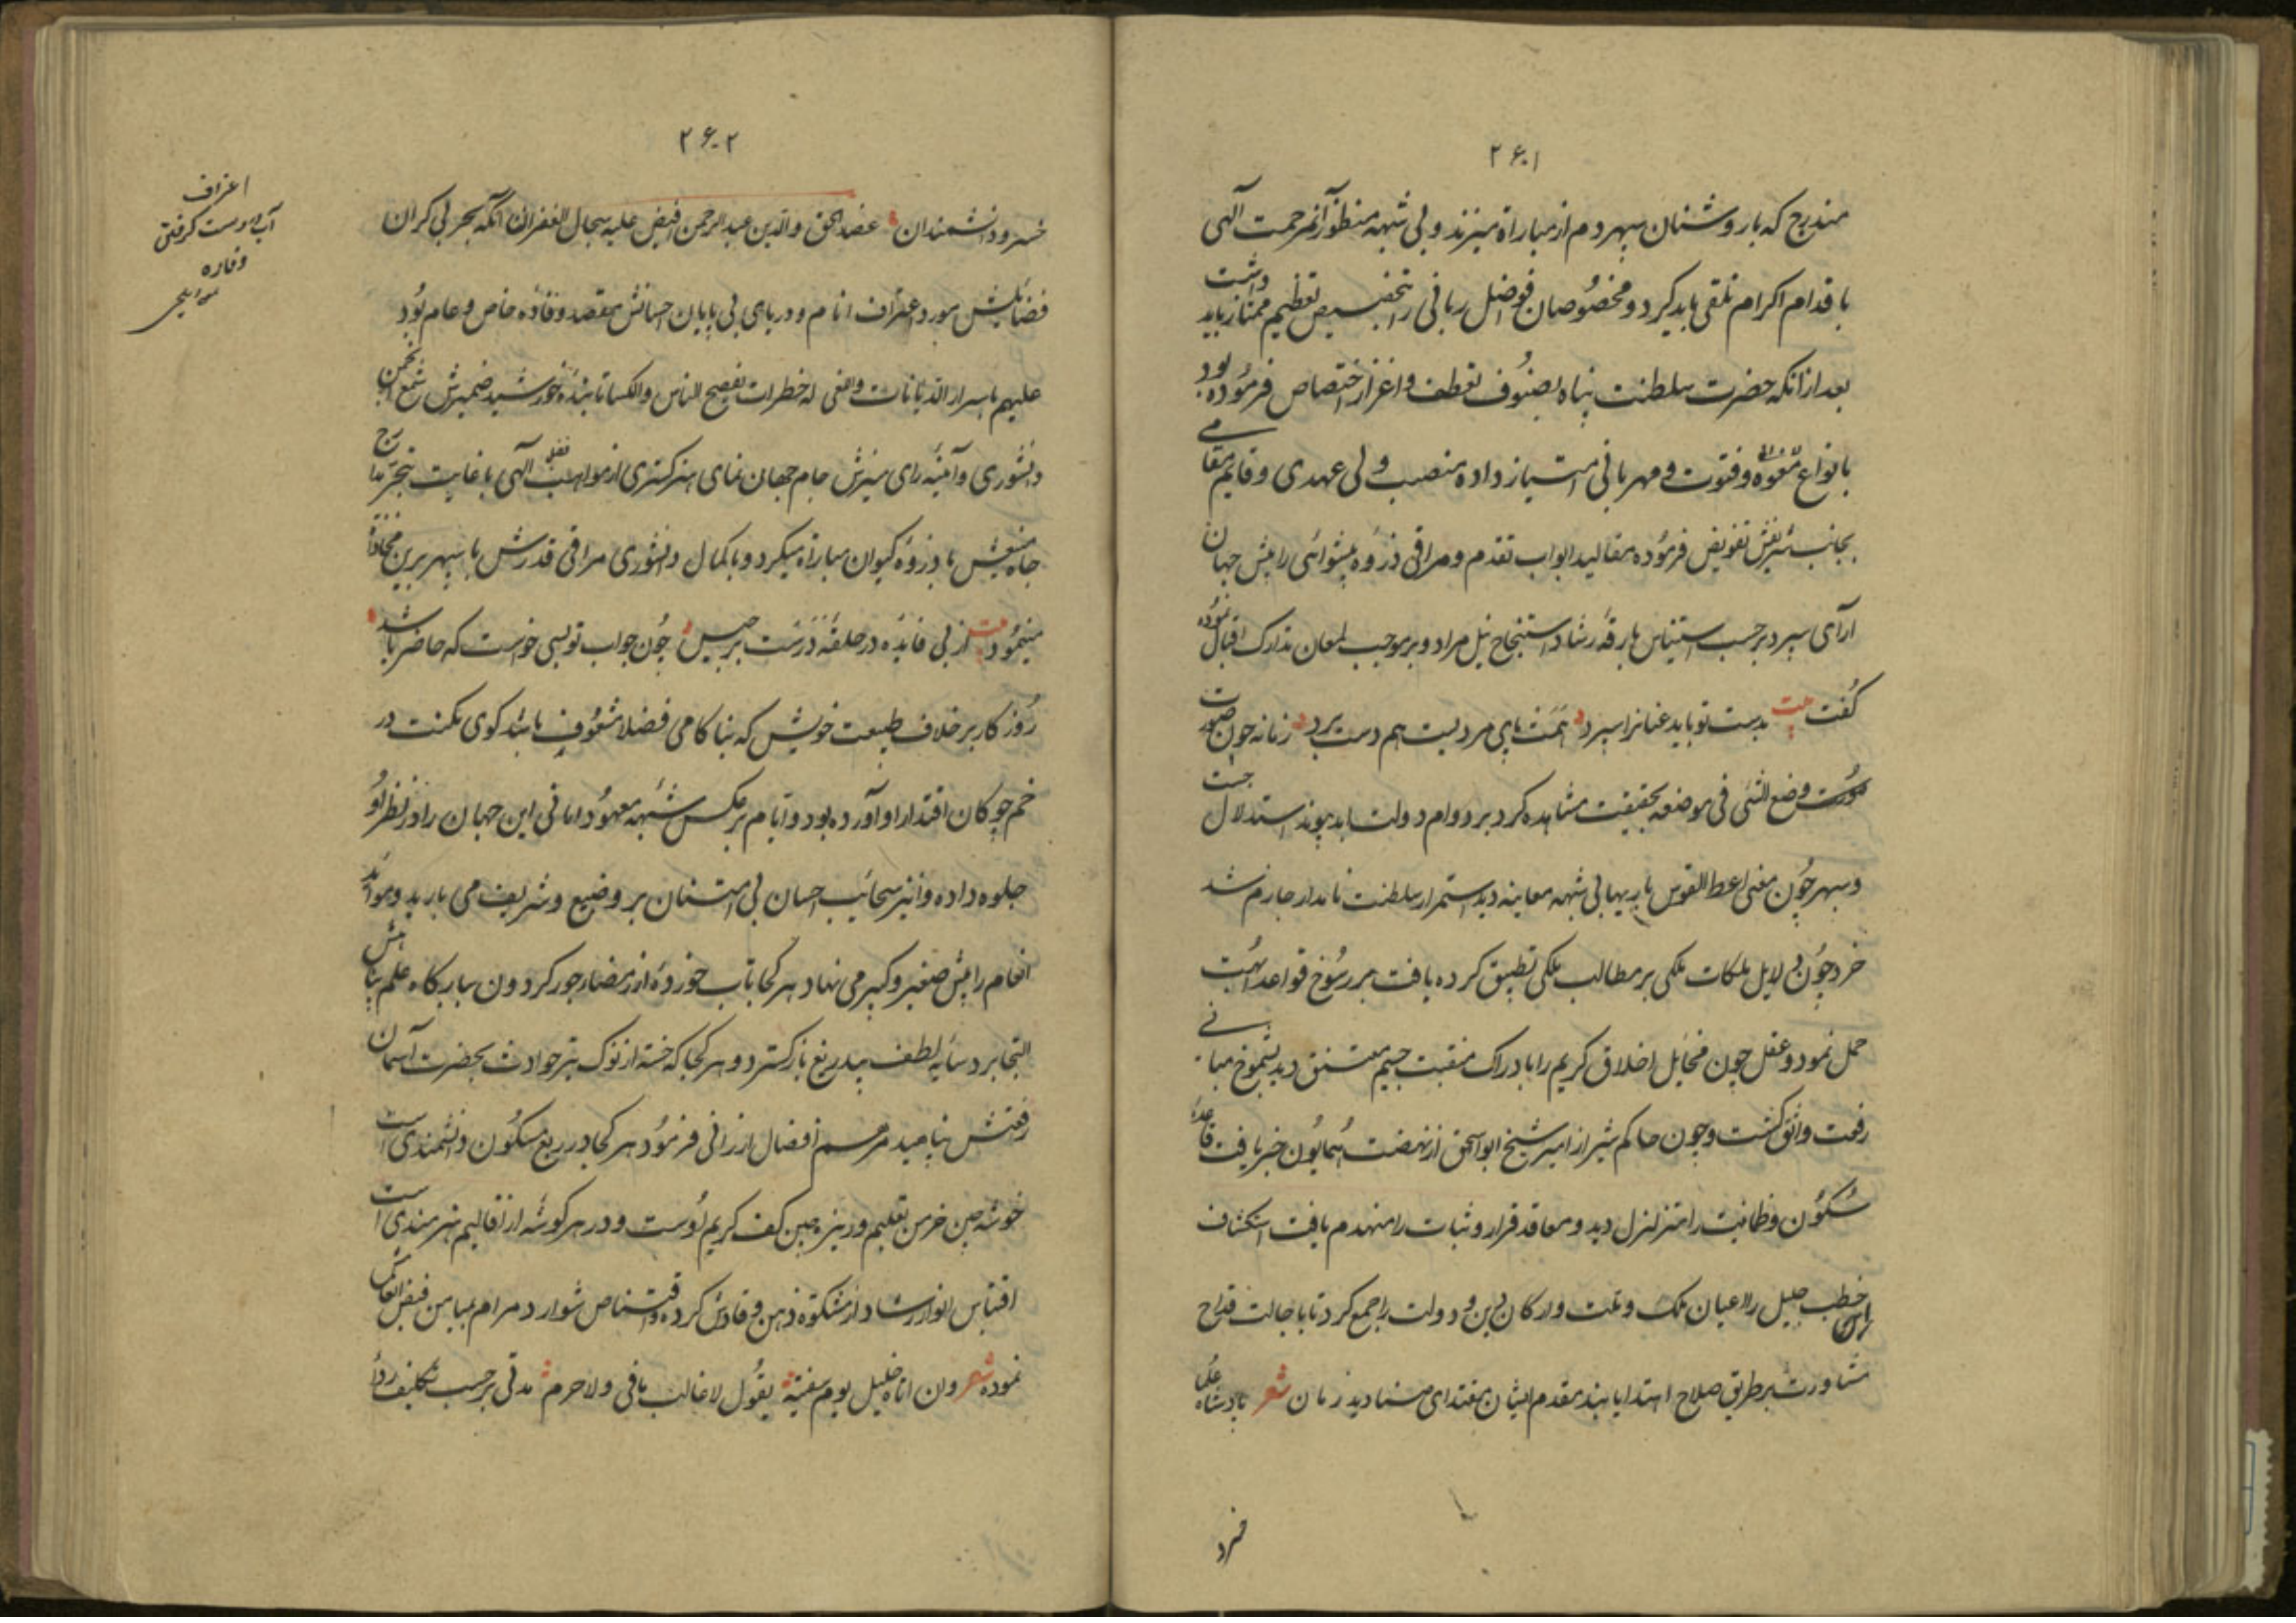 ۲۶۰۱
مندرج که بار وشنان سپهر دم از مباراة میزند و بی شبهه منظور آنمرحمت آلهی
باقدام اکرام تلقی باید کرد و مخصوصان فواضل ربانی را بتخصیص تعظیم ممتاز باید داشت
بعد از انکه حضرت سلطنت پناه بصنوف تعطف و اعزاز اختصاص فرموده بود
بانواع و فتوت و مهربانی امتیاز داده منصب ولی عهدی و قایم مقامی
بجانب شریفش تفویض فرموده مقالید ابواب تقدم و مراقی ذروه پیشوائی را پیش جهان
آرآی سپرد برحسب استیناس بارقه رشاد استنجاح نیل مراد و بر موجب لمعان تدارک اقبال نموده
گفت بیت بدست تو باید عنانرا سپرد همت پای مردیست هم دست برد زمانه چون صورت
وضع الشئ فی موضعه بحقیقت مشاهده کرد بر دوام دولت ابد پیوند استدلال جست
و سپهر چون معنی اعط القوس باریها بی شبهه معاینه دید استمرار سلطنت نامدار جازم شد
خرد چون دلایل ملکات ملکی بر مطالب ملکی تطبیق کرده یافت بر رسوخ قواعد ابهت
حمل نمود و عقل چون مخایل اخلاق کریم را با دراک منقبت جسیم متسق دید بشموخ مبانی
رفعت واثق گشت و چون حاکم شیراز امیر شیخ ابو اسحق از نهضت همایون خبر یافت قاعدهٔ
سکون و طمانیت را متزلزل دید و معاقد قرار و ثبات را منهدم یافت استکشاف
خطب جلیل را اعیان ملک و ملت و ارکان دین و دولت را جمع کرد تا باجالت قداح
مشاورت بر طریق صلاح اهتدا یابند مقدم ایشان مقتدای صنادید زمان شعر پادشاه علما
خسرو
۲۶۰۲
خسرو دانشمندان عضد الحق والدین عبد الرحمن افیض علیه سجال الغفران آنکه بحر بی کران
فضایلش مورد اعتراف انام و دریای بی پایان احسانش مقصد وفاده خاص و عام بود
علیهم باسرار الدیانات والغی له خطرات تفصیح الناس والکسا تابنده خورشید ضمیرش شمع انجمن
دانشوری و آئینه رای منیرش جام جهان نمای هنر گستری از مواهب آلهی باغایت تبحر مدارج
جاه منیعش با ذروه کیوان مباراة میکرد و باکمال دانشوری مراقی قدرش با سپهر برین محاذاة
مینمود بیت از پی فایده در حلقه درست برجیس چون جواب تو بسی خواست که حاضر باشد
روزگار بر خلاف طبیعت خویش که بناکامی فضلا مشعوف باشد گوی مکنت در
خم چوگان اقتدار او آورده بود و ایام بر عکس شیمه معهود امانی این جهان را در نظر او
جلوه داده و انیز سحائب احسان بی امتنان بر وضیع و شریف می بارید و موائد
انعام را پیش صغیر و کبیر می نهاد هر کجا تاب خورده از مضار جور گردون ببارگاه علم پناهش
التجا برد سایه لطف بیدریغ باز گسترد و هر کجا که خسته از نوک تیر حوادث بحضرت آسمان
رفعتش پناهید مرهم افضال ارزانی فرمود هر کجا در ربع مسکون دانشمندی است
خوشه چین خرمن تعلیم و ریزه چین کف کریم اوست و در هر گوشه از اقالیم هنرمندی است
اقتباس انوار رشاد از مشکوة ذهن وقادش کرده واقتناص شوارد مرام بمیامن فیض انفاسش
نموده شعر وان اتاه خلیل یوم مسغبة یقول لا غائب مالی ولا حرم مدتی برحسب تکلیف
اعراف
آب بدست گرفتن
وفاده